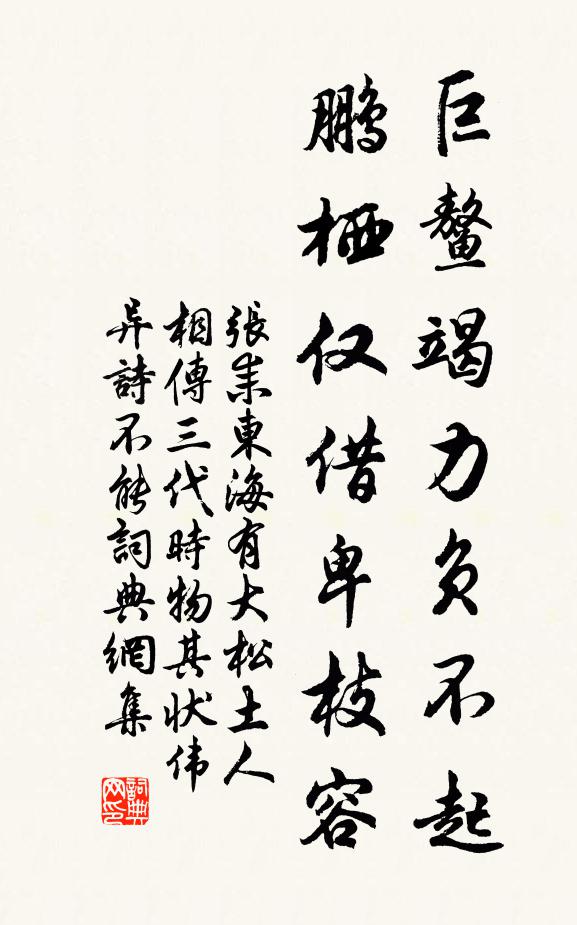 巨鳌竭力负不起
鹏栖仅借卑枝容
張耒東海有大松土人
相傳三代時物其状伟
异詩不能詞典網集
詞典
网印